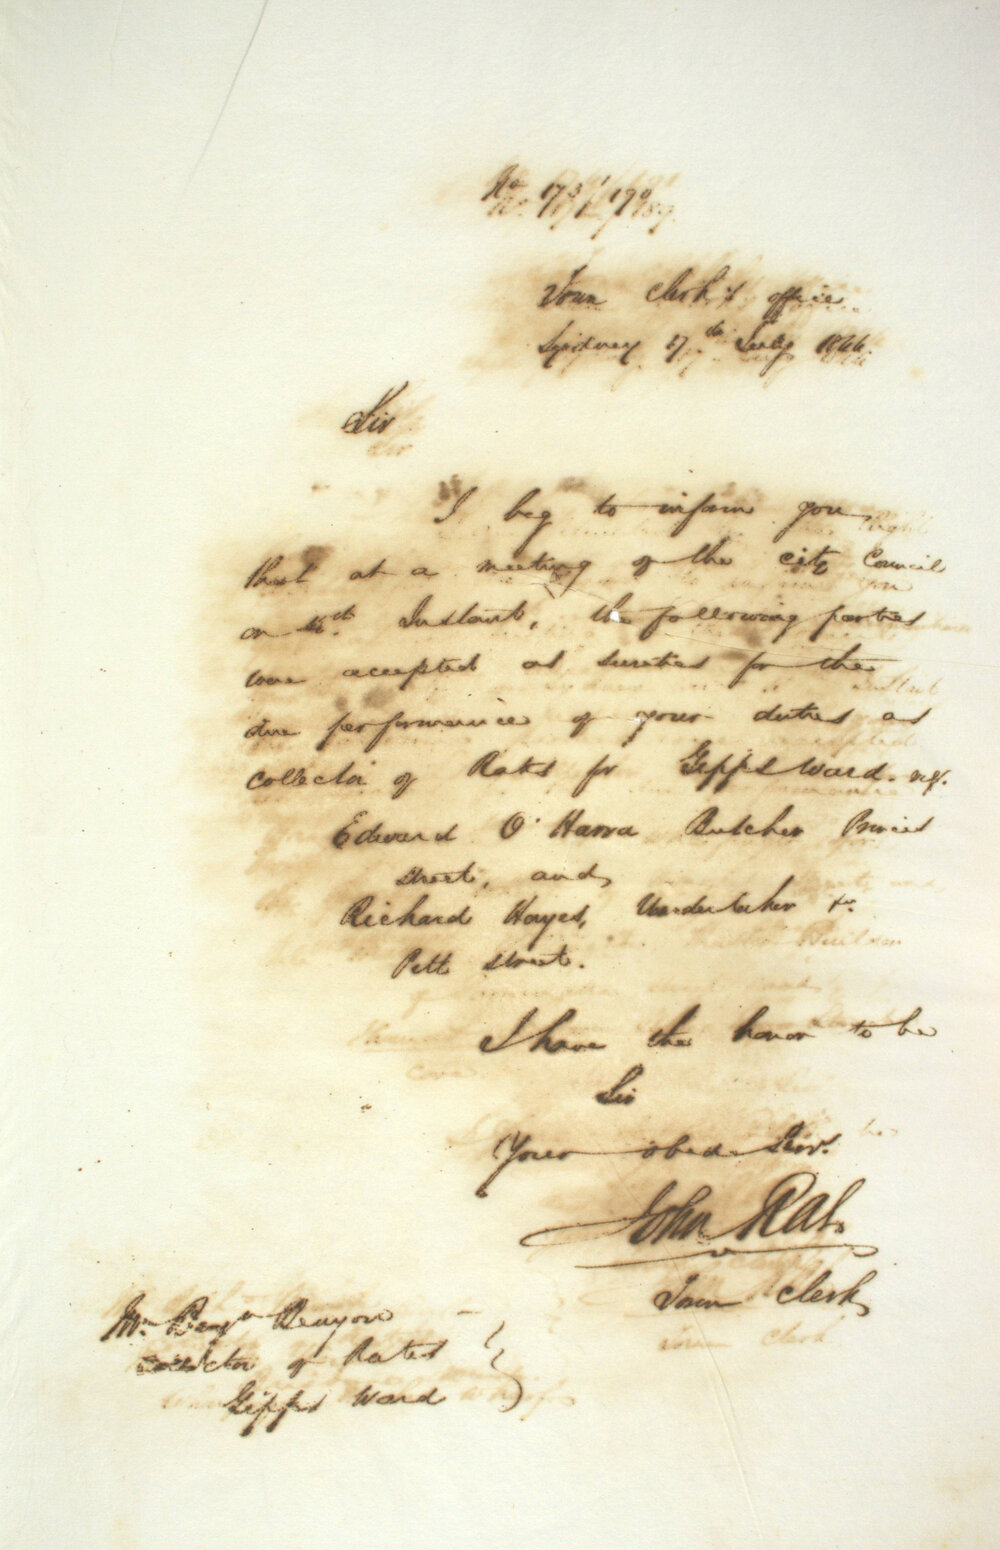 No 173/190
Town Clerk's office
Sydney 17th July 1866.
Sir
I beg to inform you
that at a meeting of the city Council
on Instant, the following parties
were accepted as sureties for the
due performance of your duties as
collector of Rates for Gipps Ward. viz.
Edward O'Harra Butcher Princes
street, and
Richard Hayes, Undertaker &c.
Pitt street.
I have the honor to be
Sir
Your obed. Serv.
John Rae
Town Clerk
Mr. Benjn Beayon
Collector of Rates
Gipps Ward